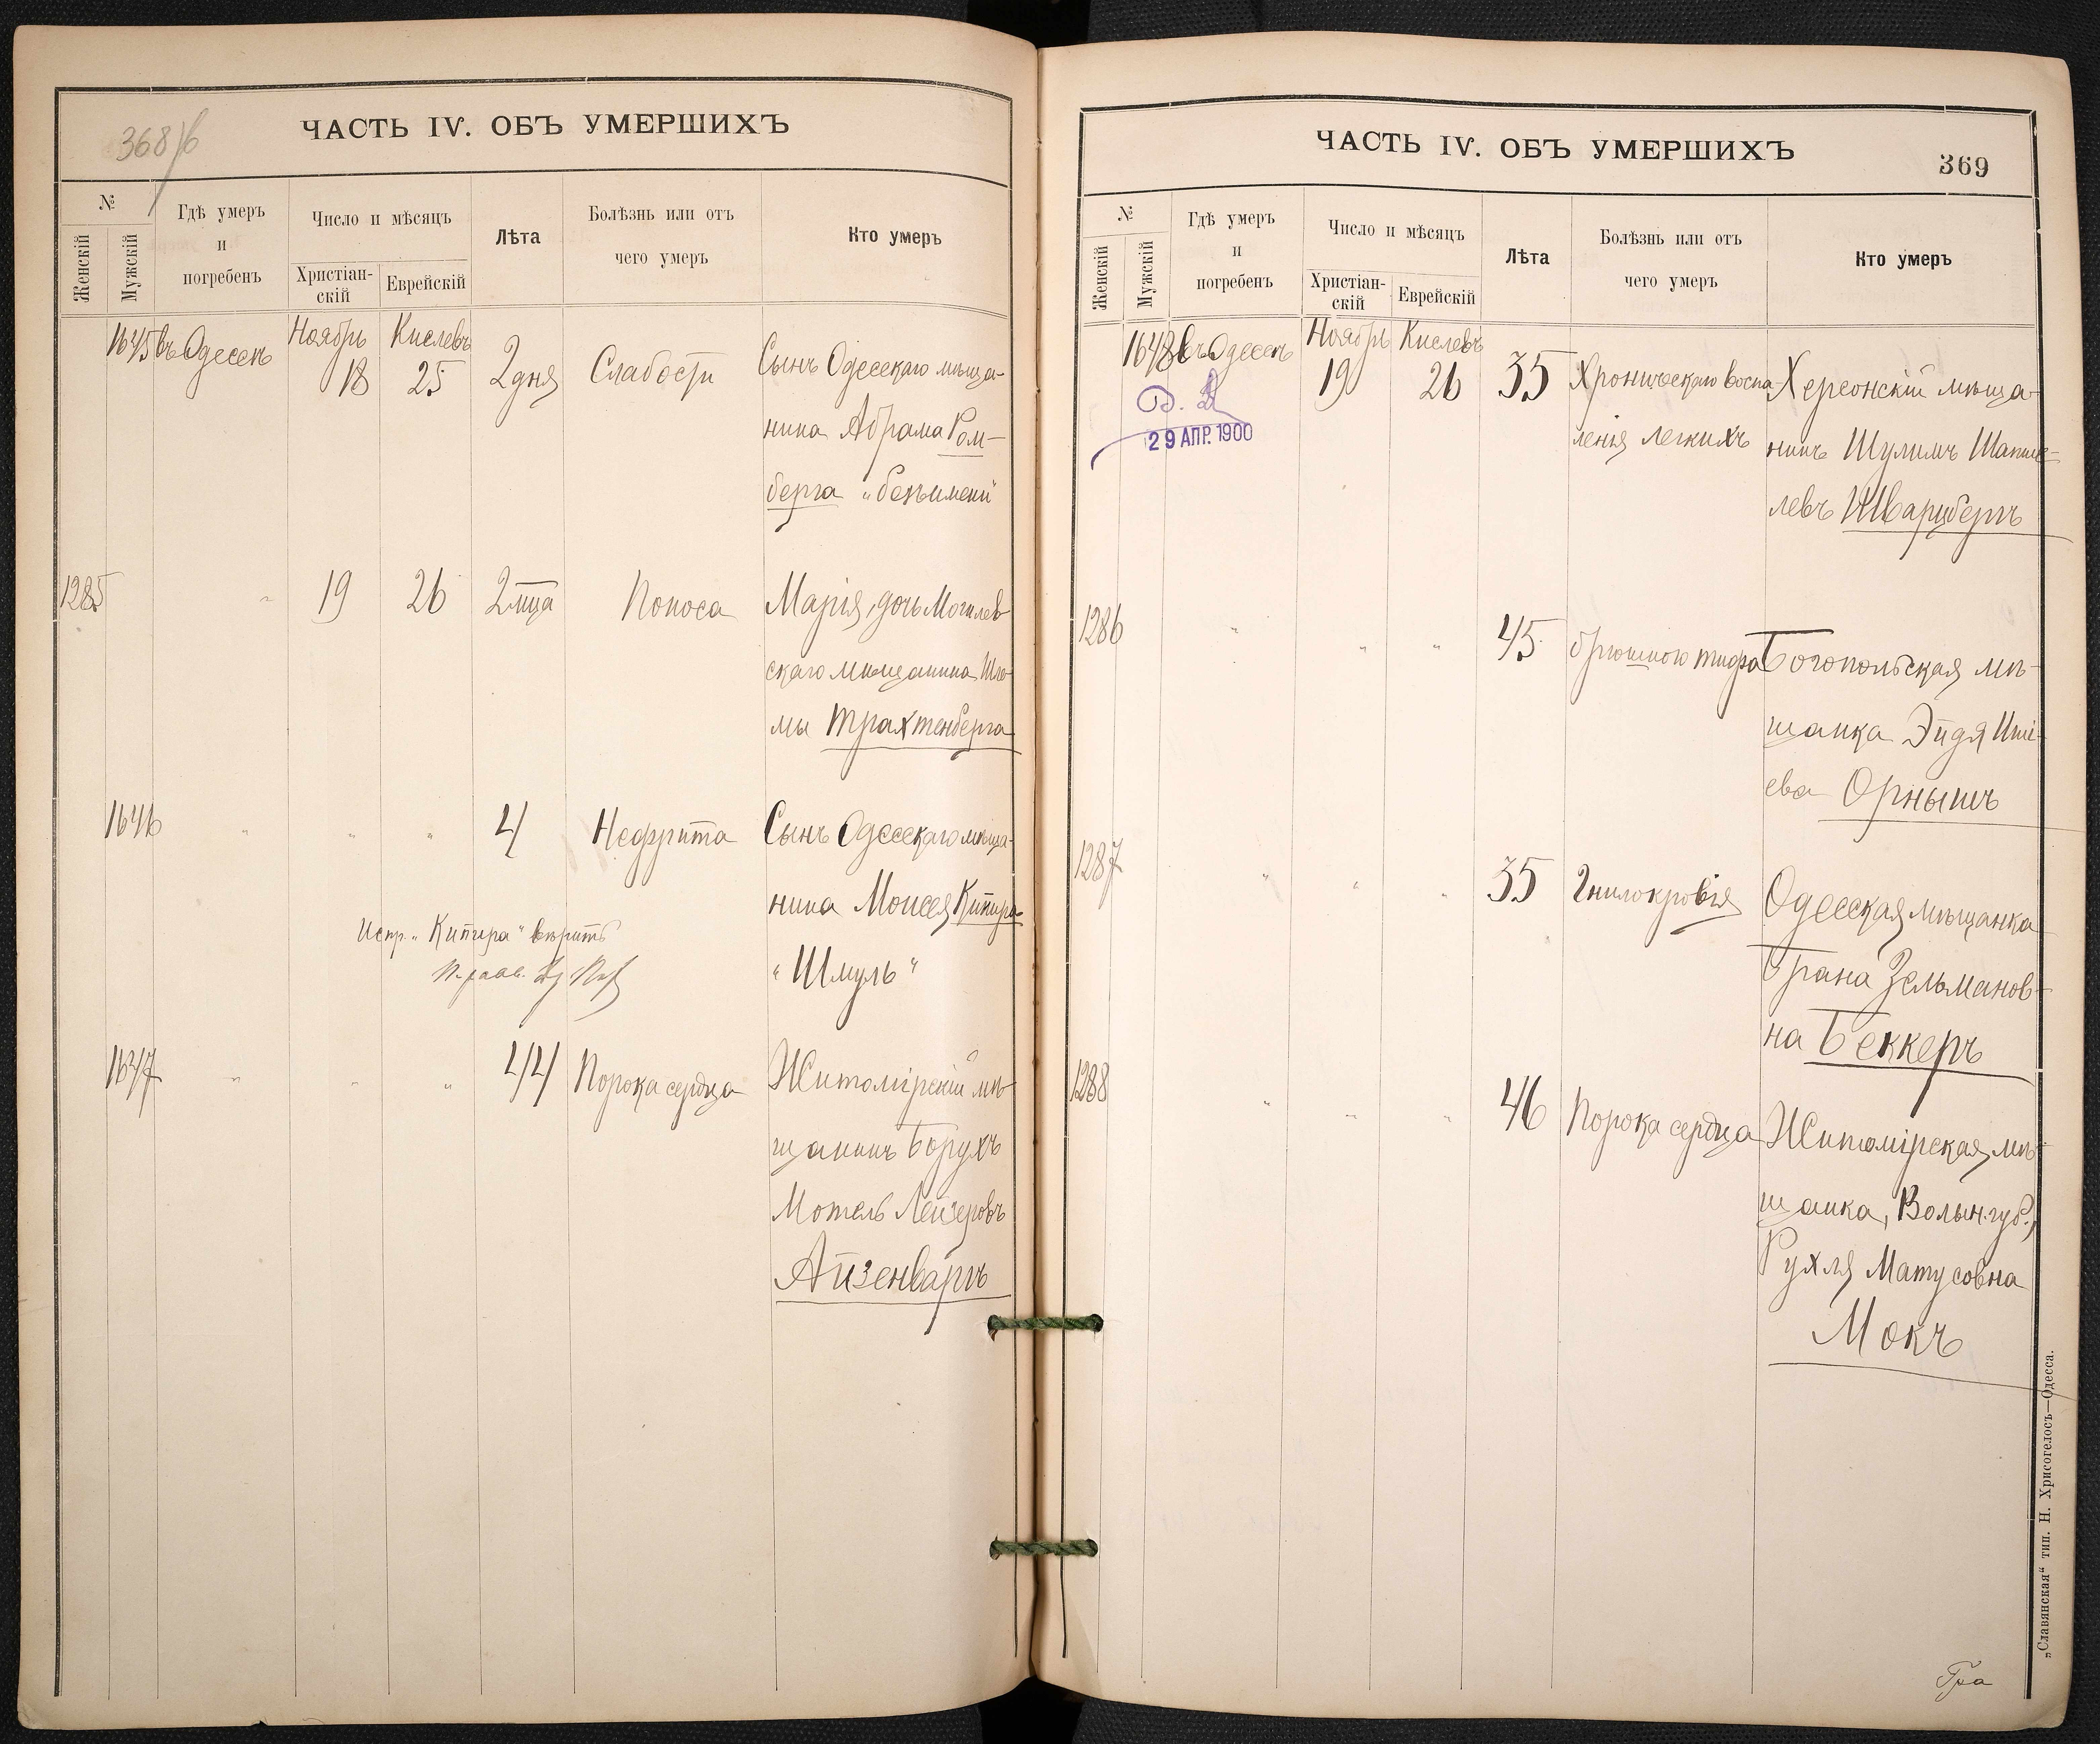 368/б
ЧАСТЬ IV. ОБЪ УМЕРШИХЪ
№
Женскій
Мужскій
Гдѣ умеръ
и
погребенъ
Число и мѣсяцъ
Христіан-
скій
Еврейскій
Лѣта
Болѣзнь или отъ
чего умеръ
Кто умеръ
1645 въ Одессѣ Ноябрь 18 Кислевъ 25 2 дня Слабости Сынъ Одесскаго мѣща-
нина Абрама Ром-
берга „безъ имени“
1285 " 19 26 2 мца Поноса Марія, дочь Могилев-
скаго мѣщанина Шло-
мы Трахтенберга
1646 " " " 4 Нефрита Сынъ Одесскаго мѣща-
нина Моисея Кипира-
„Шмуль“
Испр. „Кипира“ вѣрить
1647 " " " 44 Порока сердца Житомірскій мѣ-
щанинъ Борухъ
Мотель Лейзеровъ
Айзенваргъ
ЧАСТЬ IV. ОБЪ УМЕРШИХЪ
369
№
Женскій
Мужскій
Гдѣ умеръ
и
погребенъ
Число и мѣсяцъ
Христіан-
скій
Еврейскій
Лѣта
Болѣзнь или отъ
чего умеръ
Кто умеръ
1648 въ Одессѣ Ноябрь 19 Кислевъ 26 35 Хроническаго воспа-
ленія легкихъ
Херсонскій мѣща-
нинъ Шулимъ
левъ Шварцбергъ
29 АПР. 1900
1286 " " " 45 брюшного тифа Богопольская мѣ-
щанка Эйдя
ева Орнышъ
1287 " " " 35 Гнилокровія Одесская мѣщанка
Брана Зельманов-
на Беккеръ
1288 " " " 46 Порока сердца Житомірская мѣ-
щанка, Волын. губ.,
Рухля Матусовна
Мокъ
„Славянская“ тип. Н. Хрисогелосъ—Одесса.